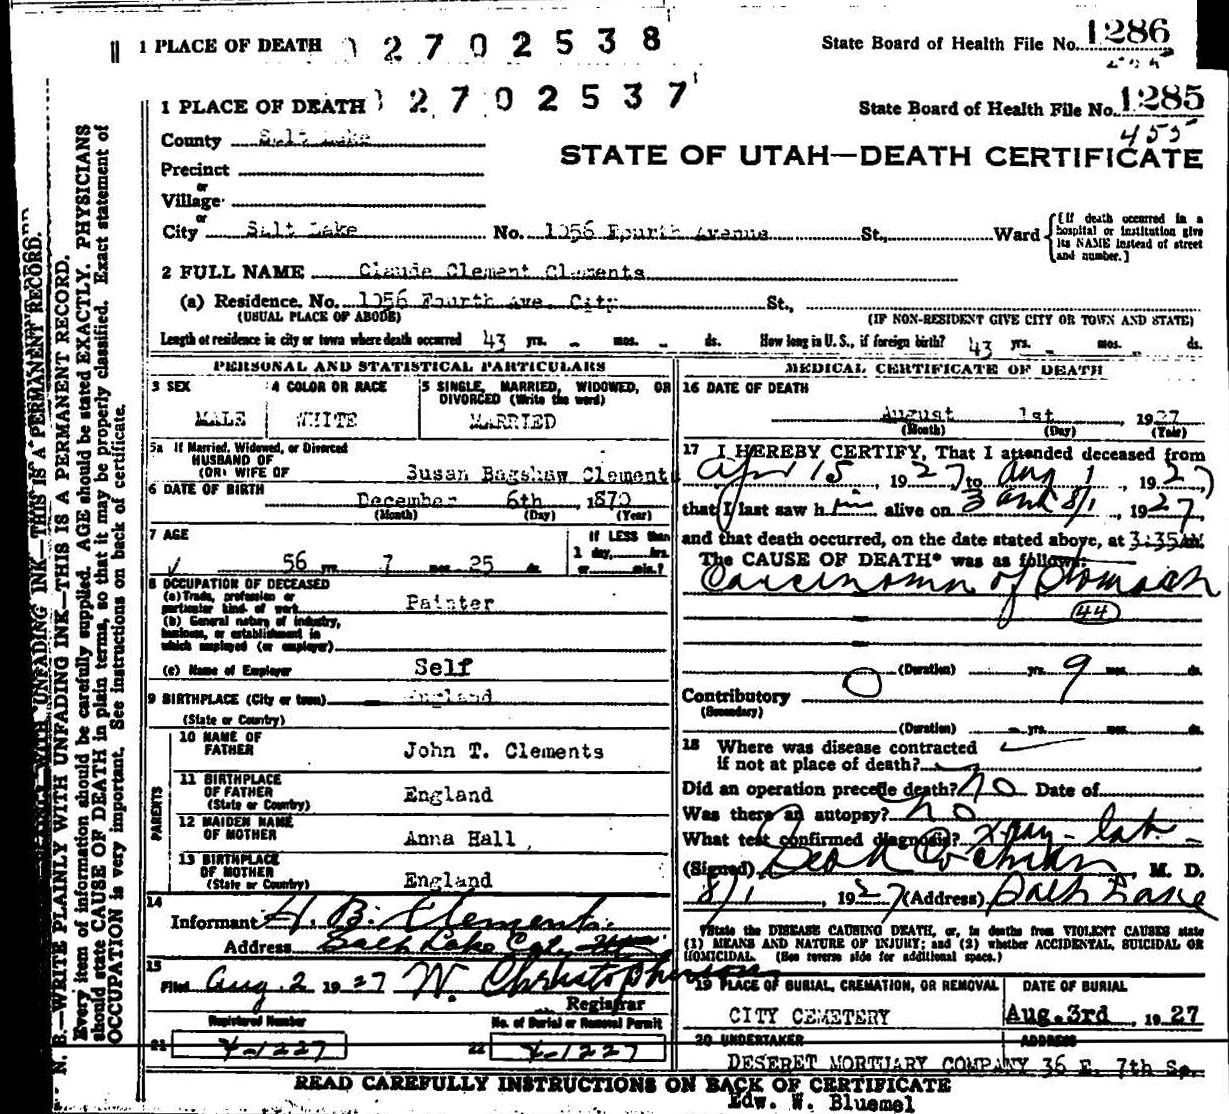 1 PLACE OF DEATH 2702538 State Board of Health File No. 1286
1 PLACE OF DEATH 2702537 State Board of Health File No. 1285
455
County Salt Lake
STATE OF UTAH—DEATH CERTIFICATE
Precinct
or
Village
or
City Salt Lake No. 1056 Fourth Avenue St., Ward {[If death occurred in a hospital or institution give its NAME instead of street and number.]
2 FULL NAME Claude Clement Clements
(a) Residence. No. 1056 Fourth Ave. City St.,
(USUAL PLACE OF ABODE) (IF NON-RESIDENT GIVE CITY OR TOWN AND STATE)
Length of residence in city or town where death occurred 43 yrs. - mos. - ds. How long in U. S., if foreign birth? 43 yrs. - mos. ds.
PERSONAL AND STATISTICAL PARTICULARS
3 SEX 4 COLOR OR RACE 5 SINGLE, MARRIED, WIDOWED, OR DIVORCED (Write the word)
MALE WHITE MARRIED
5a If Married, Widowed, or Divorced
HUSBAND OF
(OR) WIFE OF Susan Bagshaw Clements
6 DATE OF BIRTH December 6th, 1870
(Month) (Day) (Year)
7 AGE If LESS than
56 yrs. 7 mos. 25 ds. 1 day, hrs.
or min.?
8 OCCUPATION OF DECEASED
(a) Trade, profession or
particular kind of work Painter
(b) General nature of industry,
business, or establishment in
which employed (or employer)
(c) Name of Employer Self
9 BIRTHPLACE (City or town) England
(State or Country)
PARENTS
10 NAME OF
FATHER John T. Clements
11 BIRTHPLACE
OF FATHER England
(State or Country)
12 MAIDEN NAME
OF MOTHER Anna Hall
13 BIRTHPLACE
OF MOTHER
(State or Country) England
14
Informant H. B. Clements
Address Salt Lake
15
Filed Aug. 2 1927 W. Christopherson
Registrar
Registered Number No. of Burial or Removal Permit
21 4-1227 22 4-1227
MEDICAL CERTIFICATE OF DEATH
16 DATE OF DEATH
August 1st 1927
(Month) (Day) (Year)
17 I HEREBY CERTIFY, That I attended deceased from
Apr 15, 1927 to Aug 1, 1927
that I last saw him alive on 8/1, 1927
and that death occurred, on the date stated above, at 3:35 AM.
The CAUSE OF DEATH* was as follows:
Carcinoma of Stomach
44
(Duration) yrs. 9 mos. ds.
Contributory 0
(Secondary)
(Duration) yrs. mos. ds.
18 Where was disease contracted
if not at place of death?
Did an operation precede death? No Date of
Was there an autopsy? No
What test confirmed diagnosis? X-ray - Lab. -
(Signed) Cochran, M. D.
8/1, 1927 (Address) Salt Lake
*State the DISEASE CAUSING DEATH, or, in deaths from VIOLENT CAUSES state
(1) MEANS AND NATURE OF INJURY; and (2) whether ACCIDENTAL, SUICIDAL OR
HOMICIDAL. (See reverse side for additional space.)
19 PLACE OF BURIAL, CREMATION, OR REMOVAL DATE OF BURIAL
CITY CEMETERY Aug. 3rd, 1927
20 UNDERTAKER ADDRESS
DESERET MORTUARY COMPANY 36 E. 7th So.
READ CAREFULLY INSTRUCTIONS ON BACK OF CERTIFICATE
Edw. W. Bluemel
N. B.—WRITE PLAINLY WITH UNFADING INK—THIS IS A PERMANENT RECORD.
Every item of information should be carefully supplied. AGE should be stated EXACTLY. PHYSICIANS
should state CAUSE OF DEATH in plain terms, so that it may be properly classified. Exact statement of
OCCUPATION is very important. See instructions on back of certificate.